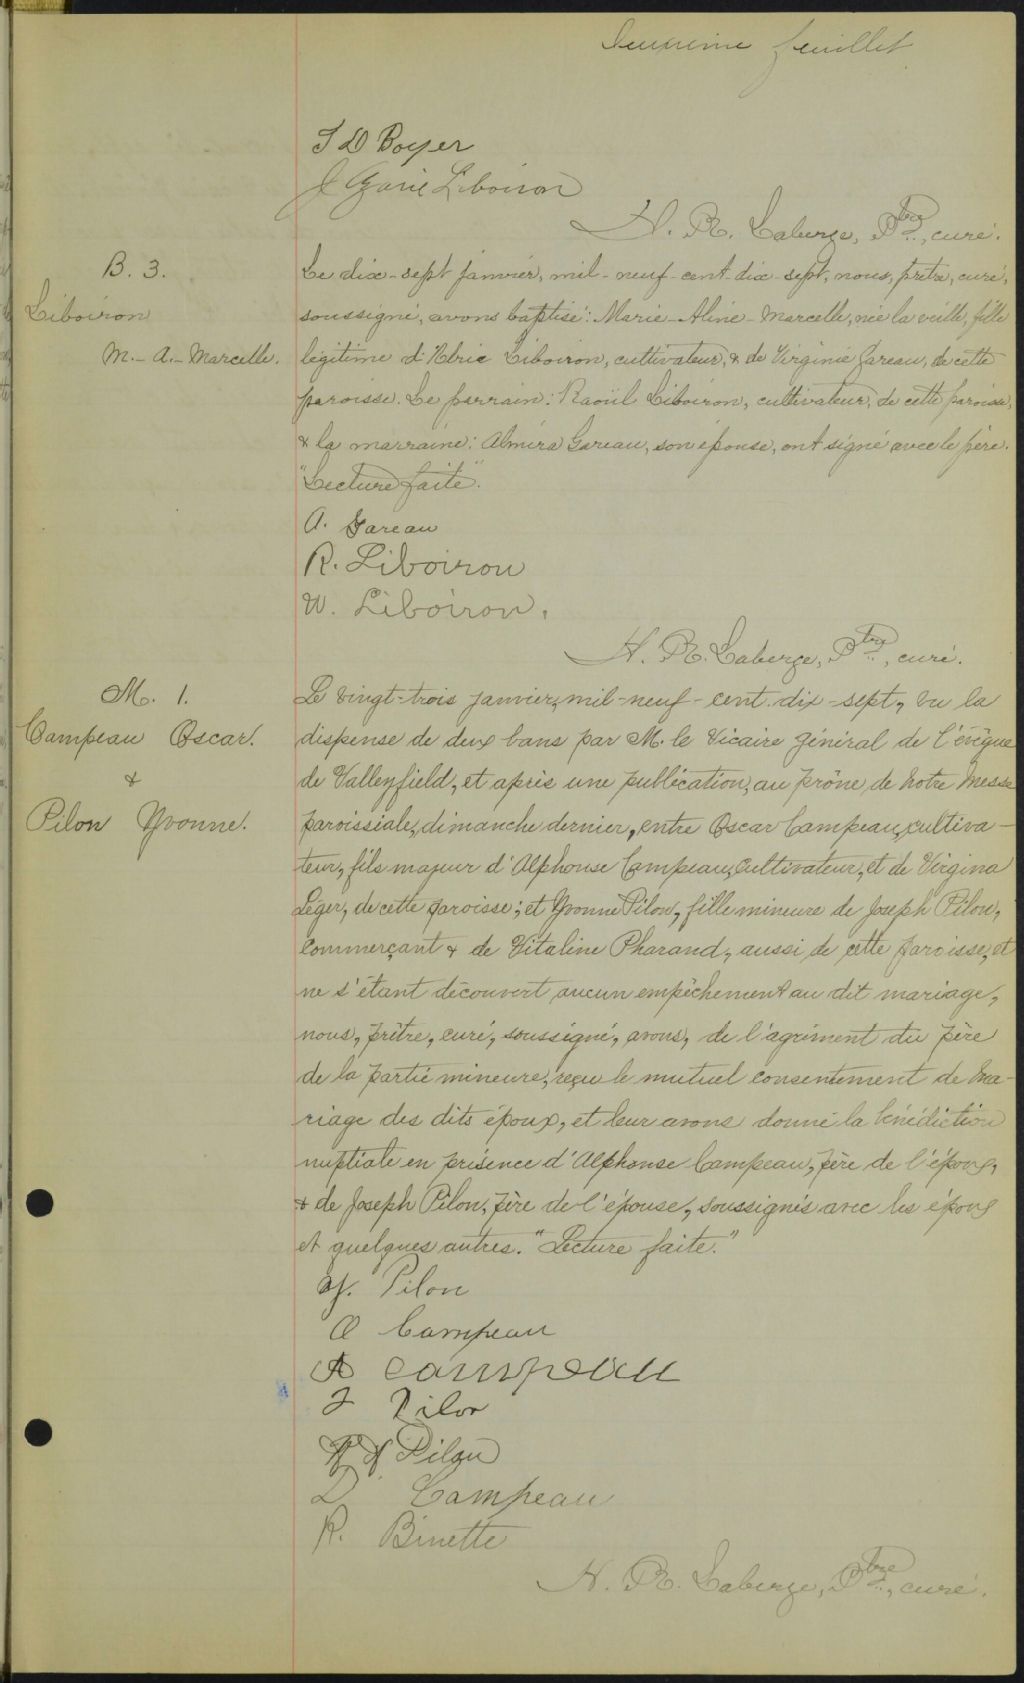 Deuxième feuillet
J D Boyer
J Ozarie Liboiron
H. R. Laberge, Ptre, curé.
B. 3.
Liboiron
M.-A.-Marcelle.
Le dix-sept janvier, mil-neuf-cent-dix-sept, nous, prêtre, curé,
soussigné, avons baptisé: Marie-Aline-Marcelle, née la veille, fille
légitime d'Ulric Liboiron, cultivateur, & de Virginie Gareau, de cette
paroisse. Le parrain: Raoûl Liboiron, cultivateur, de cette paroisse,
& la marraine: Almira Gareau, son épouse, ont signé avec le père.
"Lecture faite".
A. Gareau
R. Liboiron
W. Liboiron.
H. R. Laberge, Ptre, curé.
M. 1.
Campeau Oscar.
&
Pilon Yvonne.
Le vingt-trois janvier, mil-neuf-cent-dix-sept, vu la
dispense de deux bans par M. le Vicaire général de l'évêque
de Valleyfield, et après une publication, au prône de notre Messe
paroissiale, dimanche dernier, entre Oscar Campeau, cultiva-
teur, fils majeur d'Alphonse Campeau, cultivateur, et de Virgina
Léger, de cette paroisse; et Yvonne Pilon, fille mineure de Joseph Pilon,
commerçant & de Vitaline Pharand, aussi de cette paroisse, et
ne s'étant découvert aucun empêchement au dit mariage,
nous, prêtre, curé, soussigné, avons, de l'agrément du père
de la partie mineure, reçu le mutuel consentement de ma-
riage des dits époux, et leur avons donné la bénédiction
nuptiale en présence d'Alphonse Campeau, père de l'époux,
& de Joseph Pilon, père de l'épouse, soussignés avec les époux
et quelques autres. "Lecture faite."
Y. Pilon
O Campeau
A Campeau
J Pilon
Pilon
D Campeau
R. Binette
H. R. Laberge, Ptre, curé.